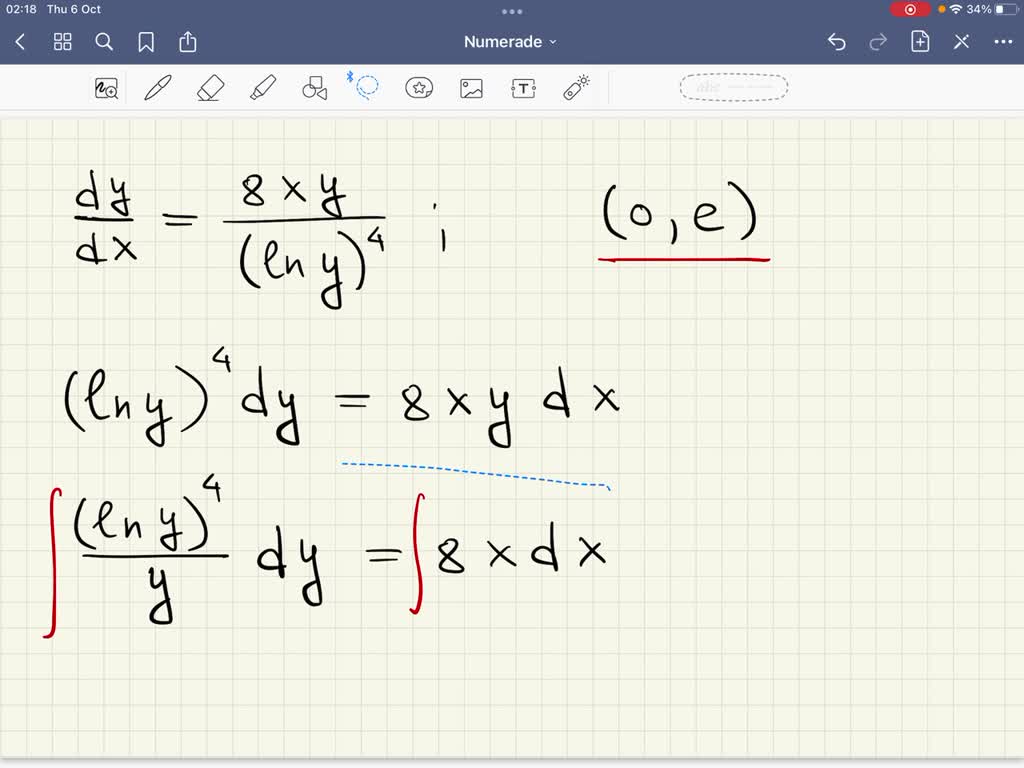 02:18 Thu 6 Oct 34%
Numerade
T
dy/dx = 8xy/(ln y)^4 ; (0, e)
(ln y)^4 dy = 8xy dx
∫ (ln y)^4/y dy = ∫ 8x dx